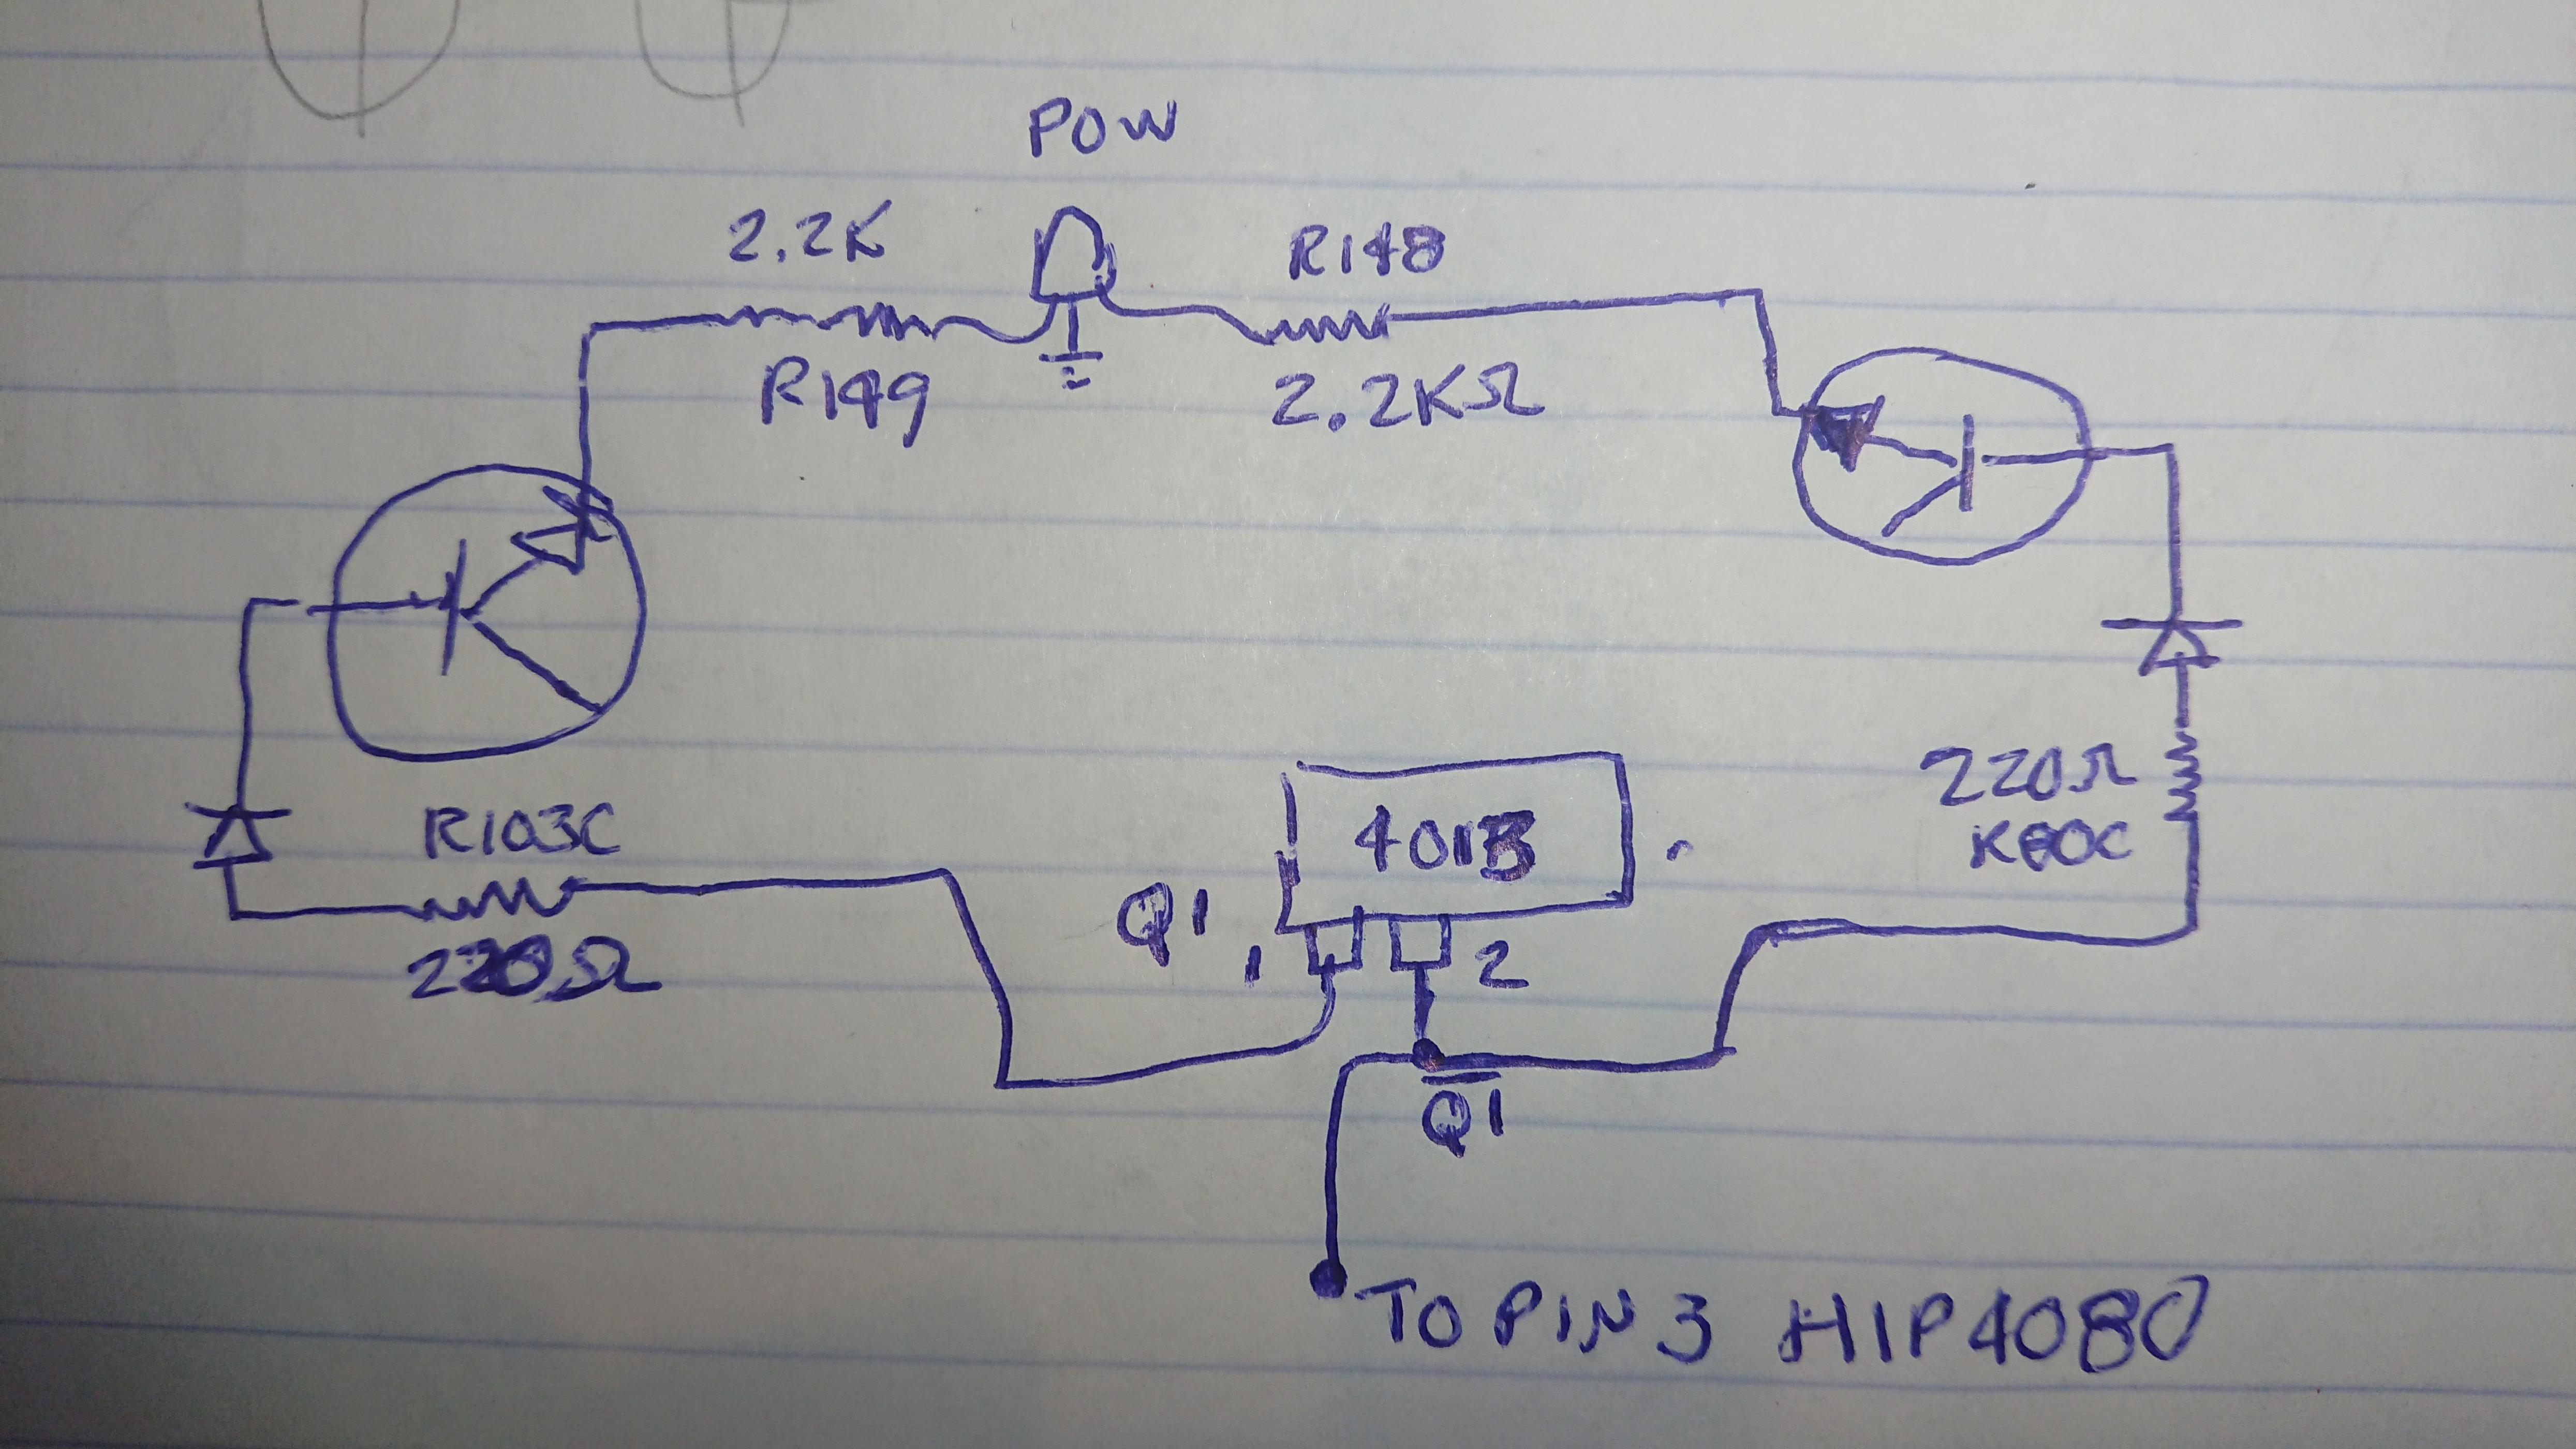 POW
2.2K
R148
R149
2.2KΩ
R103C
220Ω
4013
220Ω
Q1
1
2
Q1
TO PIN 3 HIP4080